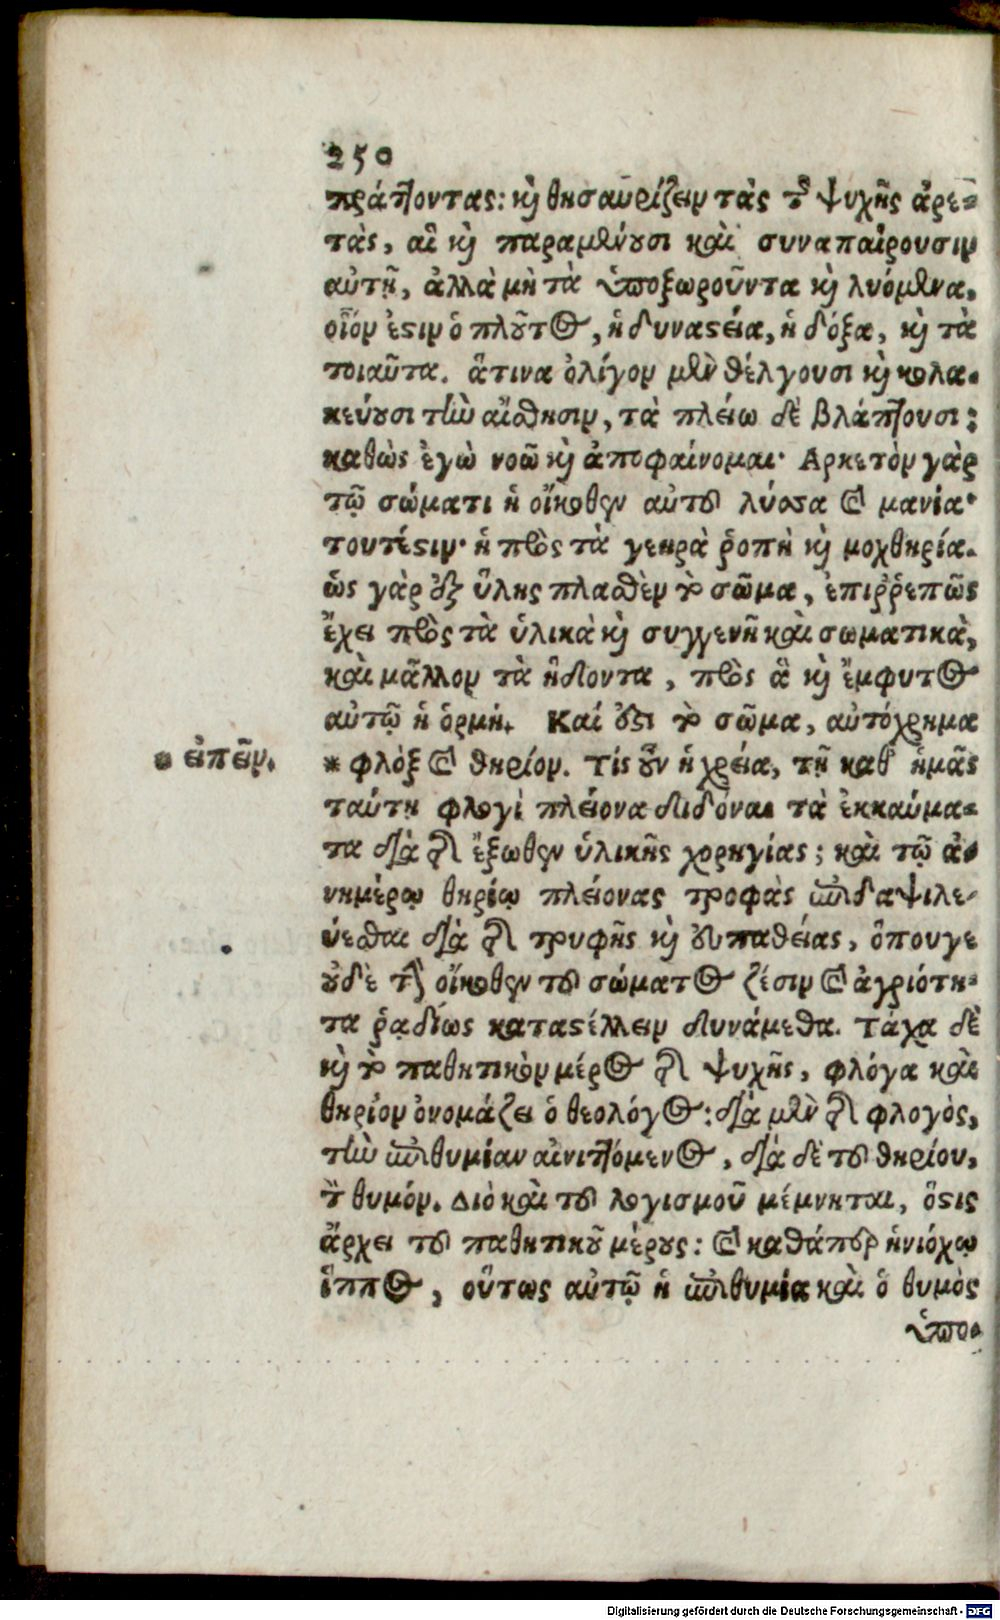 250
πράττοντας: καὶ θησαυρίζειν τὰς τῆς ψυχῆς ἀρε-
τὰς, αἳ καὶ παραμένουσι καὶ συναπαίρουσιν
αὐτῇ, ἀλλὰ μὴ τὰ ὑποχωροῦντα καὶ λυόμενα,
οἷόν ἐστιν ὁ πλοῦτος, ἡ δυναστεία, ἡ δόξα, καὶ τὰ
τοιαῦτα. ἅτινα ὀλίγον μὲν θέλγουσι καὶ κολα-
κεύουσι τὴν αἴσθησιν, τὰ πλείω δὲ βλάπτουσι:
καθὼς ἐγὼ νοῶ καὶ ἀποφαίνομαι· Αρκετὸν γὰρ
τῷ σώματι ἡ οἴκοθεν αὐτοῦ λύσσα καὶ μανία·
τουτέστιν· ἡ πρὸς τὰ γεηρὰ ῥοπὴ καὶ μοχθηρία.
ὡς γὰρ ἐξ ὕλης πλασθὲν τὸ σῶμα, ἐπιῤῥεπῶς
ἔχει πρὸς τὰ ὑλικὰ καὶ συγγενῆ καὶ σωματικὰ,
καὶ μᾶλλον τὰ ἥδοντα, πρὸς ἃ καὶ ἔμφυτος
αὐτῷ ἡ ὁρμή. Καί ἐστι τὸ σῶμα, αὐτόχρημα
* εἰπεῖν.
* φλὸξ καὶ θηρίον. Τίς οὖν ἡ χρεία, τῇ καθ' ἡμᾶς
ταύτῃ φλογὶ πλείονα διδόναι τὰ ἐκκαύμα-
τα διὰ τῆς ἔξωθεν ὑλικῆς χορηγίας; καὶ τῷ ἀ-
νημέρῳ θηρίῳ πλείονας τροφὰς ἐπιδαψιλε-
ύεσθαι διὰ τῆς τρυφῆς καὶ εὐπαθείας, ὅπουγε
οὐδὲ τὴν οἴκοθεν τοῦ σώματος ζέσιν καὶ ἀγριότη-
τα ῥαδίως καταστέλλειν δυνάμεθα. Τάχα δὲ
καὶ τὸ παθητικὸν μέρος τῆς ψυχῆς, φλόγα καὶ
θηρίον ὀνομάζει ὁ θεολόγος: διὰ μὲν τῆς φλογὸς,
τὴν ἐπιθυμίαν αἰνιττόμενος, διὰ δὲ τοῦ θηρίου,
τὸν θυμόν. Διὸ καὶ τοῦ λογισμοῦ μέμνηται, ὅστις
ἄρχει τοῦ παθητικοῦ μέρους: καὶ καθάπερ ἡνιόχῳ
ἵππος, οὕτως αὐτῷ ἡ ἐπιθυμία καὶ ὁ θυμὸς
ὑπο-
Digitalisierung gefördert durch die Deutsche Forschungsgemeinschaft - DFG